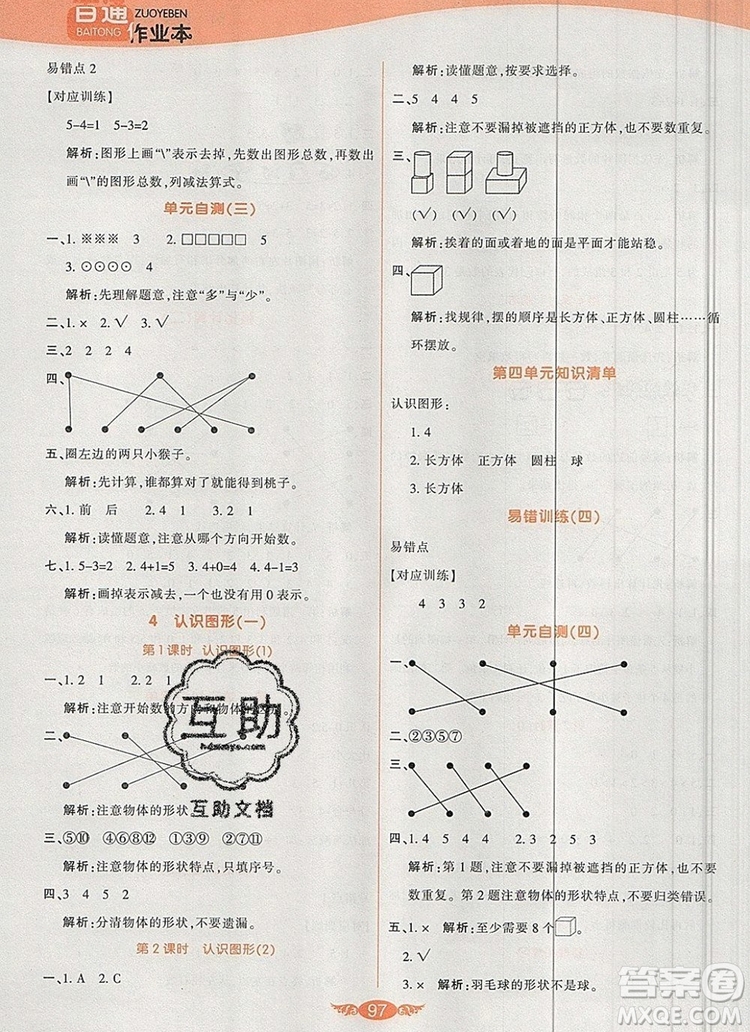 百通
BAITONG
ZUOYEBEN
作业本
易错点 2
【对应训练】
5-4=1 5-3=2
解析:图形上画"\"表示去掉,先数出图形总数,再数出
画"\"的图形总数,列减法算式。
单元自测(三)
一、1. ※※※ 3 2. □□□□□ 5
3. ⊙⊙⊙⊙ 4
解析:先理解题意,注意"多"与"少"。
二、1. × 2. √ 3. √
三、2 2 2 4
四、
五、圈左边的两只小猴子。
解析:先计算,谁都算对了谁就能得到桃子。
六、1. 前 后 2. 4 1 3. 2 1
解析:读懂题意,注意从哪个方向开始数。
七、1. 5-3=2 2. 4+1=5 3. 4-4=0 4. 1+4=5
解析:画掉表示减去,一个也没有用 0 表示。
4 认识图形(一)
第 1 课时 认识图形(1)
一、1. 2 1 2. 2 1
解析:注意开始数的方向和物体的
二、
解析:注意物体的形状
三、⑤⑩ ④⑥⑧⑫ ①③⑨ ②⑦⑪
解析:注意物体的形状特点,只填序号。
四、3 4 5 2
解析:分清物体的形状,不要遗漏。
第 2 课时 认识图形(2)
一、1. A 2. C
解析:读懂题意,按要求选择。
二、5 4 4 5
解析:注意不要漏掉被遮挡的正方体,也不要数重复。
三、
(√) (√) (√)
解析:挨着的面或着地的面是平面才能站稳。
四、
解析:找规律,摆的顺序是长方体、正方体、圆柱……循
环摆放。
第四单元知识清单
认识图形:
1. 4
2. 长方体 正方体 圆柱 球
易错训练(四)
易错点
【对应训练】
4 3 3 2
单元自测(四)
一、
二、②③⑤⑦
三、
四、1. 4 5 4 4 2. 3 2 5 3
解析:第 1 题,注意不要漏掉被遮挡的正方体,也不要
数重复。第 2 题注意物体的形状特点,不要归类错误。
五、1. × 解析:至少需要 8 个
2. √
3. × 解析:羽毛球的形状不是球。
97
互助
hdzuoye.com
互助文档
答案圈
MXQE.COM